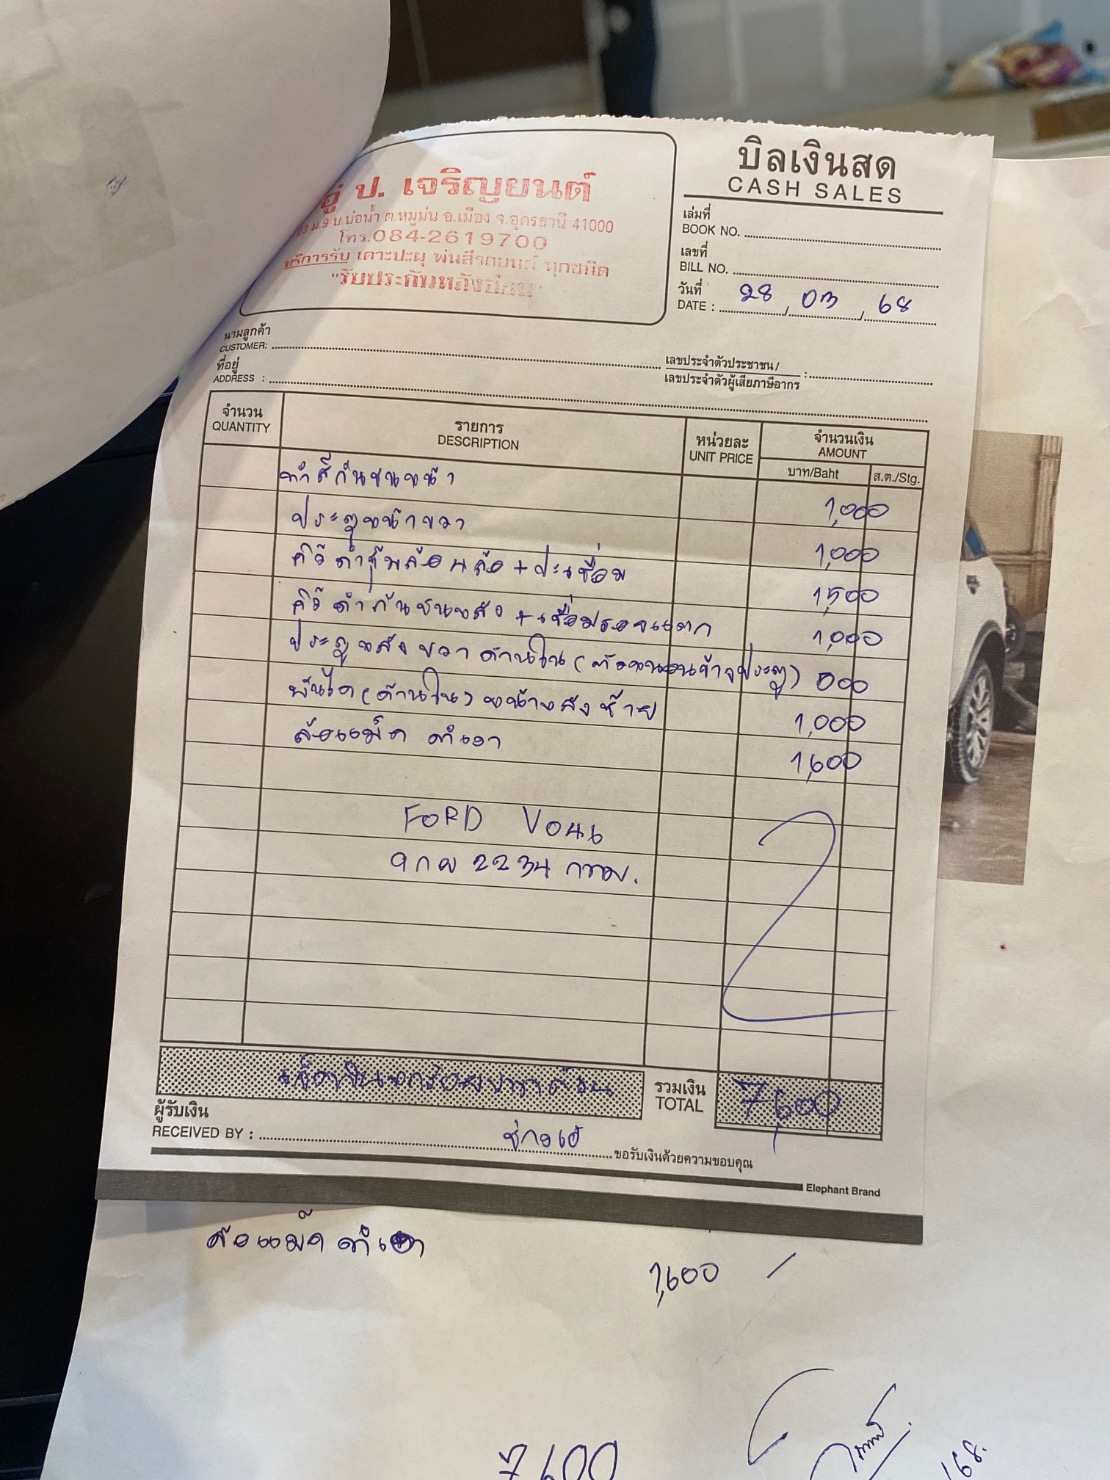 บิลเงินสด
CASH SALES
อู่ ป. เจริญยนต์
ม.9 บ.บ่อน้ำ ต.หมูม่น อ.เมือง จ.อุดรธานี 41000
โทร.084-2619700
บริการรับ เคาะปะผุ พ่นสีรถยนต์ ทุกชนิด
"รับประกันหลังซ่อม"
เล่มที่
BOOK NO.
เลขที่
BILL NO.
วันที่
DATE : 28 / 03 / 68
นามลูกค้า
CUSTOMER:
เลขประจำตัวประชาชน /
เลขประจำตัวผู้เสียภาษีอากร :
ที่อยู่
ADDRESS :
จำนวน รายการ หน่วยละ จำนวนเงิน
QUANTITY DESCRIPTION UNIT PRICE AMOUNT
บาท/Baht ส.ต./Stg.
ทำสีกันชนหน้า 1,000
ประตูหน้าขวา 1,000
คิ้วดำซุ้มล้อ + ปะเชื่อม 1,500
คิ้วดำกันชนหลัง + เชื่อมรอยแตก 1,000
ประตูหลังขวาด้านใน ( ประตู) 000
บันได (ด้านใน) หน้าหลังซ้าย 1,000
ล้อแม็ก ดำเงา 1,600
FORD V046
9กผ 2234 กทม.
รวมเงิน
TOTAL 7,600
ผู้รับเงิน
RECEIVED BY :
ขอรับเงินด้วยความขอบคุณ
Elephant Brand
ล้อแม็ก ดำเงา
1,600
7,600